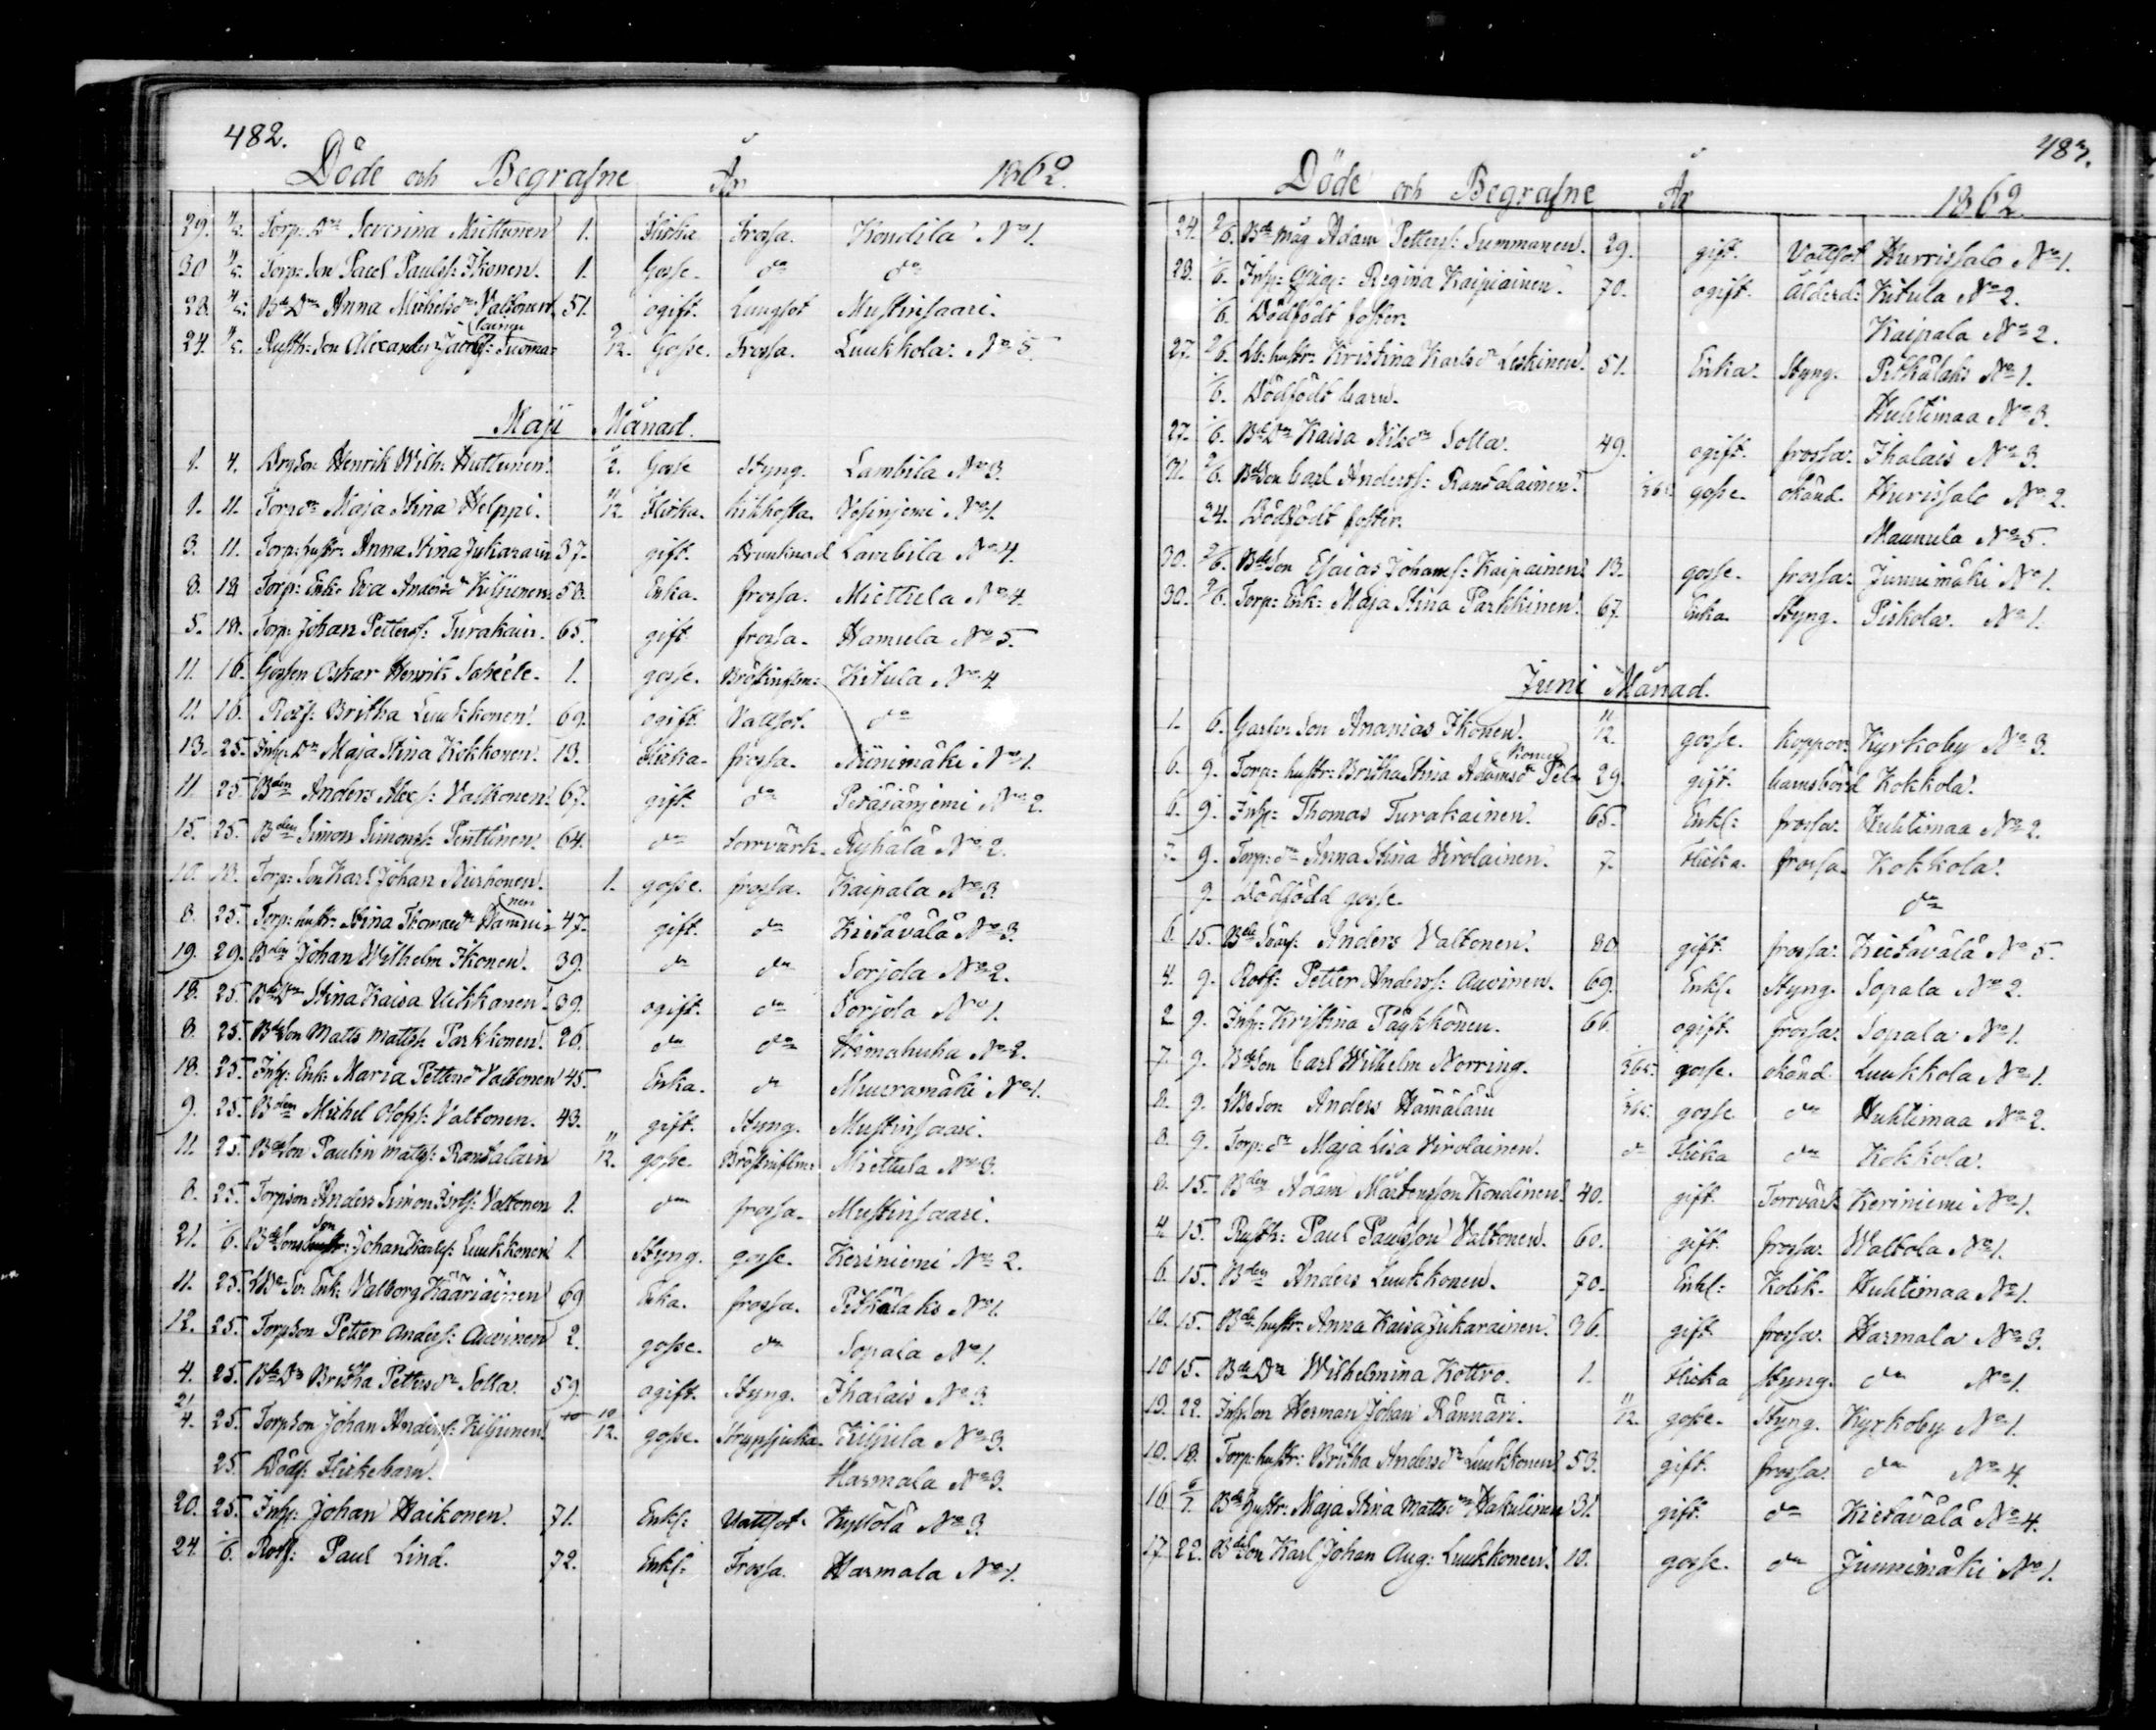 482.
Döde och Begrafne År 1862.
29. 4/5. Torp: Dr Severina Miettunen 1. Flicka Frossa. Kondila No 1.
30 4/5. Torp: Son Paul Paulss: Ikonen. 1. Gosse. do do
28. 4/5. Bde Dr Anna Michelsdr Valtonen 51. ogift. Lungsot Mustinsaari.
24. 4/5. Rusth: Son Alexander Jacobs: Suoma= lainen 9/12. Gosse. Frossa. Luukkola No 5.
Maji Månad.
1. 4. Drgson Henrik Wilh: Huttunen. 1/2. Gosse Styng. Lambila No 3.
1. 11. Torp dr Maja Stina Helppi. 11/12. Flicka. kikhosta. Vesiniemi No 1.
3. 11. Torp: hustr: Anna Stina Jukarain 37. gift. Drunknad Lambila No 4.
8. 18 Torp: Enk: Eva Andersdr Kiljunen 58. Enka. frossa. Miettula No 4.
5. 18. Torp: Johan Petterss: Turakain. 65. gift frossa. Hamula No 5.
11. 16. Gossen Oskar Henrik 1. gosse. Bröstinflm: Kitula No 4
11. 16. Rotf: Britha Luukkonen. 69. ogift. Vattsot. do
13. 25. Inh: Dr Maja Stina Kokkonen. 13. Flicka. frossa. Niinimäki No 1.
11. 25. Bden Anders Alexs: Valkonen. 67. gift. do Peräsänjemi No 2.
15. 25. Bden Simon Simonss: Penttinen. 64. do Torrvärk. Ryhälä No 2.
10. 18. Torp: Son Karl Johan Nurhonen. 1. gosse. frossa. Kaipala No 3
8. 25. Torp: hustr: Stina Thomasdr Hannui= nen 47. gift. do Kietävälä No 3.
19. 29. Bden Johan Wilhelm Ikonen. 39. do do Sorjola No 2.
18. 25. Bde Dr Stina Kaisa Uikkanen. 39. ogift. do Sorjola No 1.
8. 25. Bde Son Matts Mattss: Parkkonen. 26. do do Himahuha No 2.
18. 25. Inh: Enk: Maria Pettersdr Valtonen 45. Enka. do Muuramäki No 1.
9. 25. Bden Michel Olofss: Valtonen. 43. gift. Styng. Mustinsaari.
11. 25. Bde Son Paulin Mattss: Rantalain 11/12. gosse. Bröstinflm: Miettula No 3.
8. 25. Torpson Anders Simon Valtonen 1. do frossa. Mustinsaari.
21. 1/6. Bde Sons Son Johan Karlss: Luukkonen 1. Styng. gosse. Keriniemi No 2.
11. 25. Enk: Valborg Kääriäinen 69 Enka. frossa. Pitkälaks No 1.
12. 25. Torpson Petter Anderss: Auvinen 2. gosse. do Sopala No 1.
4. 25. Bde Dr Britha Pettersdr Solla. 59. ogift. Styng. Ihalais No 3.
21/4. 25. Torpson Johan Anderss: Kiljunen. 10/12. gosse. Strypsjuka. Kiljula No 3.
25. Dödf: Flickebarn. Harmala No 3.
20. 25. Inh: Johan Haikonen. 71. Enkl: Vattsot. Kyllölä No 3.
24. 1/6. Rotf: Paul Lind. 72. Enkl: Frossa. Harmala No 1.
483.
Döde och Begrafne År 1862.
24. 9/6. Bde Måg Adam Petterss: Summanen. 29. gift. Vattsot Hurrissalo No 1.
28. 1/6. Inh: Regina Kaipiainen. 70. ogift. Ålderd: Kitula No 2.
1/6. Dödfödt foster. Kaipala No 2.
27. 9/6. Lb: hustr: Kristina Karlsdr Leskinen. 51. Enka. Styng. Pitkälaks No 1.
1/6. Dödfödt barn. Huhtimaa No 3.
27. 1/6. Bde Dr Kaisa Nilsdr Solla. 49. ogift. frossa. Ihalais No 3.
31. 9/6. Bde Son Carl Anderss: Rantalainen. 1/365 gosse. okänd. Hurissalo No 2.
24. Dödfödt foster. Maunula No 5.
30. 9/6. Bde Son Esaias Johanss: Kaipainen. 13. gosse. frossa. Junnimäki No 1.
30. 9/6. Torp: Enk: Maja Stina Parkkinen. 67. Enka Styng. Piskola No 1.
Juni Månad.
1. 6. Garfv: Son Ananias Ikonen. 11/12. gosse. koppor. Kyrkoby No 3.
6. 9. Torp: hustr: Britha Stina Adamsdr Pel= konen 29. gift. barnsbörd Kokkola.
6. 9. Inh: Thomas Turakainen. 65. Enkl: frossa. Huhtimaa No 2.
7. 9. Torp: dr Anna Stina Virolainen. 7. Flicka. frossa. Kokkola.
9. Dödfödd gosse. do
6. 15. Bde Anders Valtonen. 80. gift. frossa. Kietävälä No 5.
4. 9. Rotf: Petter Anderss: Auvinen. 69. Enkl. Styng. Sopala No 2.
2 9. Inh: Kristina Päykkönen. 66. ogift. frossa. Sopala No 1.
7. 9. Bde Son Carl Wilhelm Norring. 1/365. gosse. okänd. Luukkola No 1.
8. 9. Son Anders Hämäläin 1/365. gosse do Huhtimaa No 2.
8. 9. Torp: dr Maja Lisa Virolainen. do Flicka do Kokkola.
8. 15. Bden Adam Mårtensson Kondinen. 40. gift. Torrvärk. Keriniemi No 1.
4 15. Rusth: Paul Paulsson Valtonen. 60. gift. frossa. Waltola No 1.
6. 15. Bden Anders Luukkonen. 70. Enkl: Kolik. Huhtimaa No 1.
10. 15. Bde hustr: Anna Kaisa Jukarainen. 36. gift. frossa. Harmala No 3.
10 15. Bde Dr Wilhelmina Kottvo. 1. Flicka Styng. do No 1.
19. 22. Inh Son Herman Johan Rännäri. 11/12. gosse. Styng. Kyrkoby No 1.
10. 18. Torp: hustr: Britha Andersdr Luukkonen. 53. gift. frossa. do No 4.
16. 6/7. Bde Hustr: Maja Stina Mattsdr Hakulinen 31. gift. do Kietävälä No 4.
17. 22. Bde Son Karl Johan Aug: Luukkonen. 10. gosse. do Junnimäki No 1.